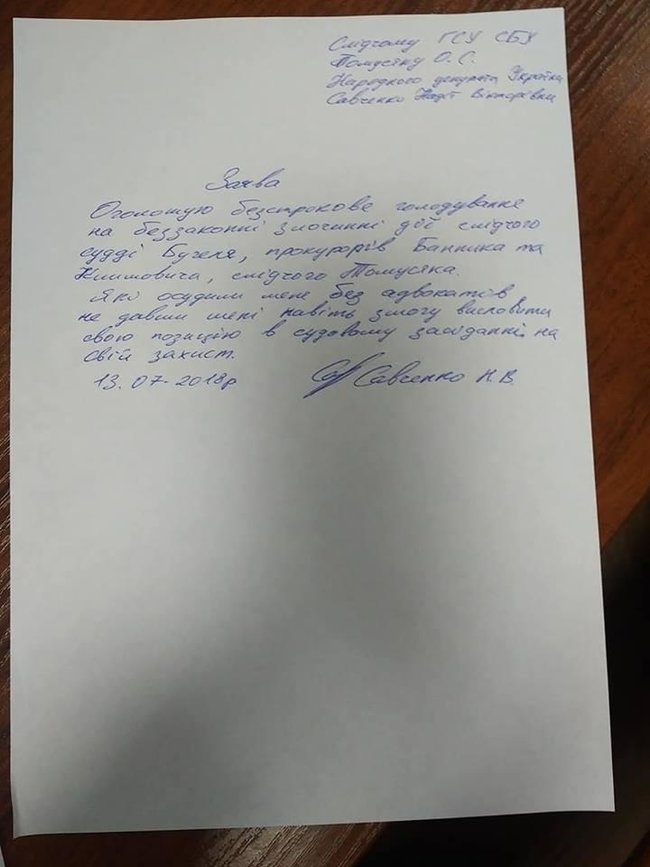 Слідчому ГСУ СБУ
Томусяку О. С.
Народного депутата України
Савченко Надії Вікторівни
Заява
Оголошую безстрокове голодування
на беззаконні злочинні дії слідчого
судді Бучеля, прокурорів Банника та
Климовича, слідчого Томусяка.
Які осудили мене без адвокатів
не давши мені навіть змогу висловити
свою позицію в судовому засіданні на
свій захист.
13.07-2018р Савченко Н.В.